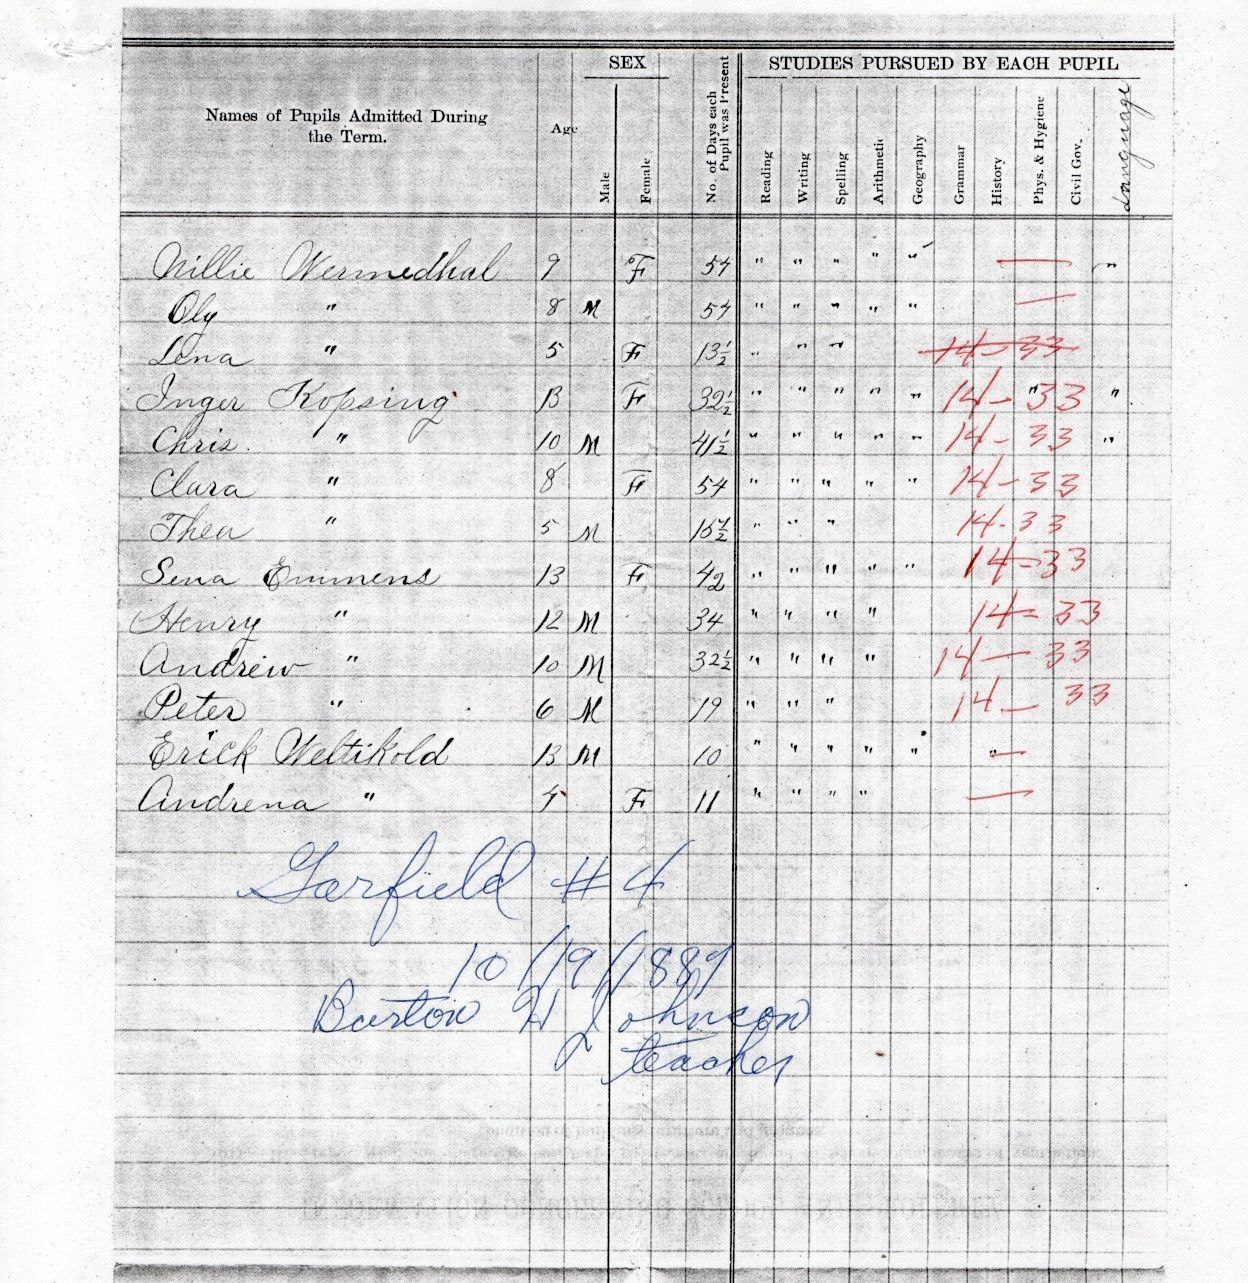 SEX
STUDIES PURSUED BY EACH PUPIL
Names of Pupils Admitted During the Term. Age Male Female No. of Days each Pupil was Present Reading Writing Spelling Arithmetic Geography Grammar History Phys. & Hygiene Civil Gov. Language
Nillie Wermedhal 9 F 54 " " " " " — "
Oly " 8 M 54 " " " " " —
Lena " 5 F 13½ " " " 14-33
Inger Kopsing 13 F 32½ " " " " " 14- " 33 "
Chris. " 10 M 41½ " " " " " 14-33 "
Clara " 8 F 54 " " " " " 14-33
Thea " 5 M " " " 14-33
Sena Emmens 13 F 42 " " " " " 14-33
Henry " 12 M 34 " " " " 14-33
Andrew " 10 M 32½ " " " " 14-33
Peter " 6 M 19 " " " 14-33
Erick Weltikold 13 M 10 " " " " " " —
Andrena " F 11 " " " " —
Garfield #4
10/19/1889
Burton H Johnson
teacher